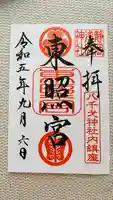 奉拝
八千戈神社内鎮座
東照宮
令和五年九月六日